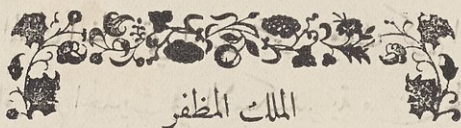 الملك المظفر